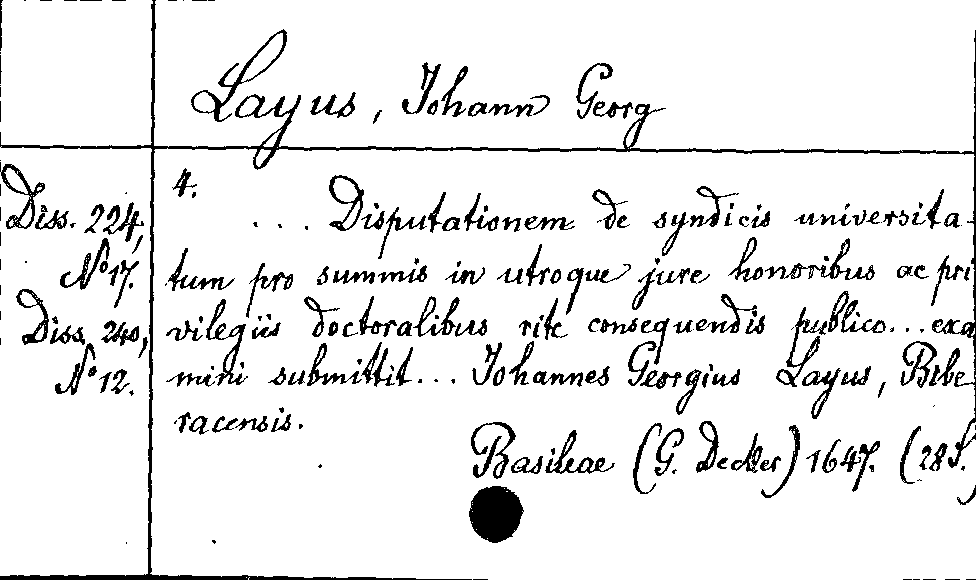 Layus, Johann Georg
Diss. 224,
No 17.
Diss. 240,
No 12.
4.
... Disputationem de syndicis universita-
tum pro summis in utroque jure honoribus ac pri
vilegiis doctoralibus rite consequendis publico... exa
mini submittit... Johannes Georgius Layus, Bibe
racensis.
Basileae (G. Decker) 1647. (28 S.)